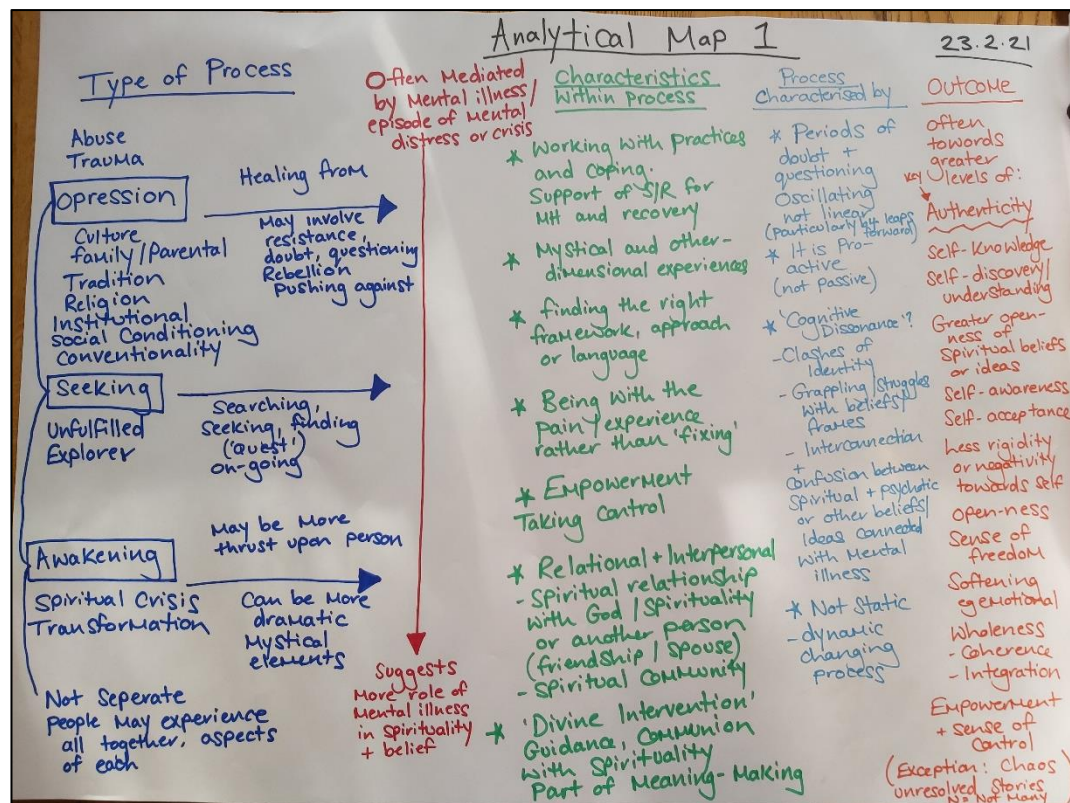 Analytical Map 1
23.2.21
Type of Process
Abuse
Trauma
Opression
Healing from
May involve
resistance,
doubt, questioning
Rebellion
Pushing against
Culture
family/Parental
Tradition
Religion
Institutional
social Conditioning
Conventionality
Seeking
Searching,
seeking, finding
('quest')
on-going
Unfulfilled
Explorer
Awakening
May be More
thrust upon person
Spiritual Crisis
Transformation
Can be More
dramatic
Mystical
elements
Not Seperate
people May experience
all together, aspects
of each
Often Mediated
by Mental illness/
episode of Mental
distress or crisis
Suggests
More role of
Mental illness
in spirituality
+ belief
Characteristics
Within Process
* Working with practices
and coping.
Support of S/R for
MH and recovery
* Mystical and other-
dimensional experiences
* finding the right
framework, approach
or language
* Being with the
pain/experience
rather than 'fixing'
* Empowerment
Taking Control
* Relational + Interpersonal
- Spiritual relationship
with God / Spirituality
or another person
(friendship / Spouse)
- Spiritual Community
* 'Divine Intervention'
Guidance, Communion
with Spirituality
Part of Meaning-Making
Process
Characterised by
* Periods of
doubt +
questioning
Oscillating
not linear
(particularly leaps
forward)
* It is Pro-
active
(not passive)
* 'Cognitive
Dissonance'?
- Clashes of
Identity
- Grappling/Struggles
with beliefs/
frames
- Interconnection
+
Confusion between
Spiritual + psychotic
or other beliefs/
Ideas connected
with Mental
illness
* Not Static
- dynamic
changing
process
Outcome
often
towards
greater
levels of:
key
Authenticity
Self-Knowledge
Self-discovery/
understanding
Greater open-
ness of
Spiritual beliefs
or ideas
Self-awareness
Self-acceptance
Less rigidity
or negativity
towards self
Open-ness
Sense of
freedom
Softening
eg emotional
Wholeness
- Coherence
- Integration
Empowerment
+ sense of
Control
(Exception: Chaos
unresolved Stories)
Not Many